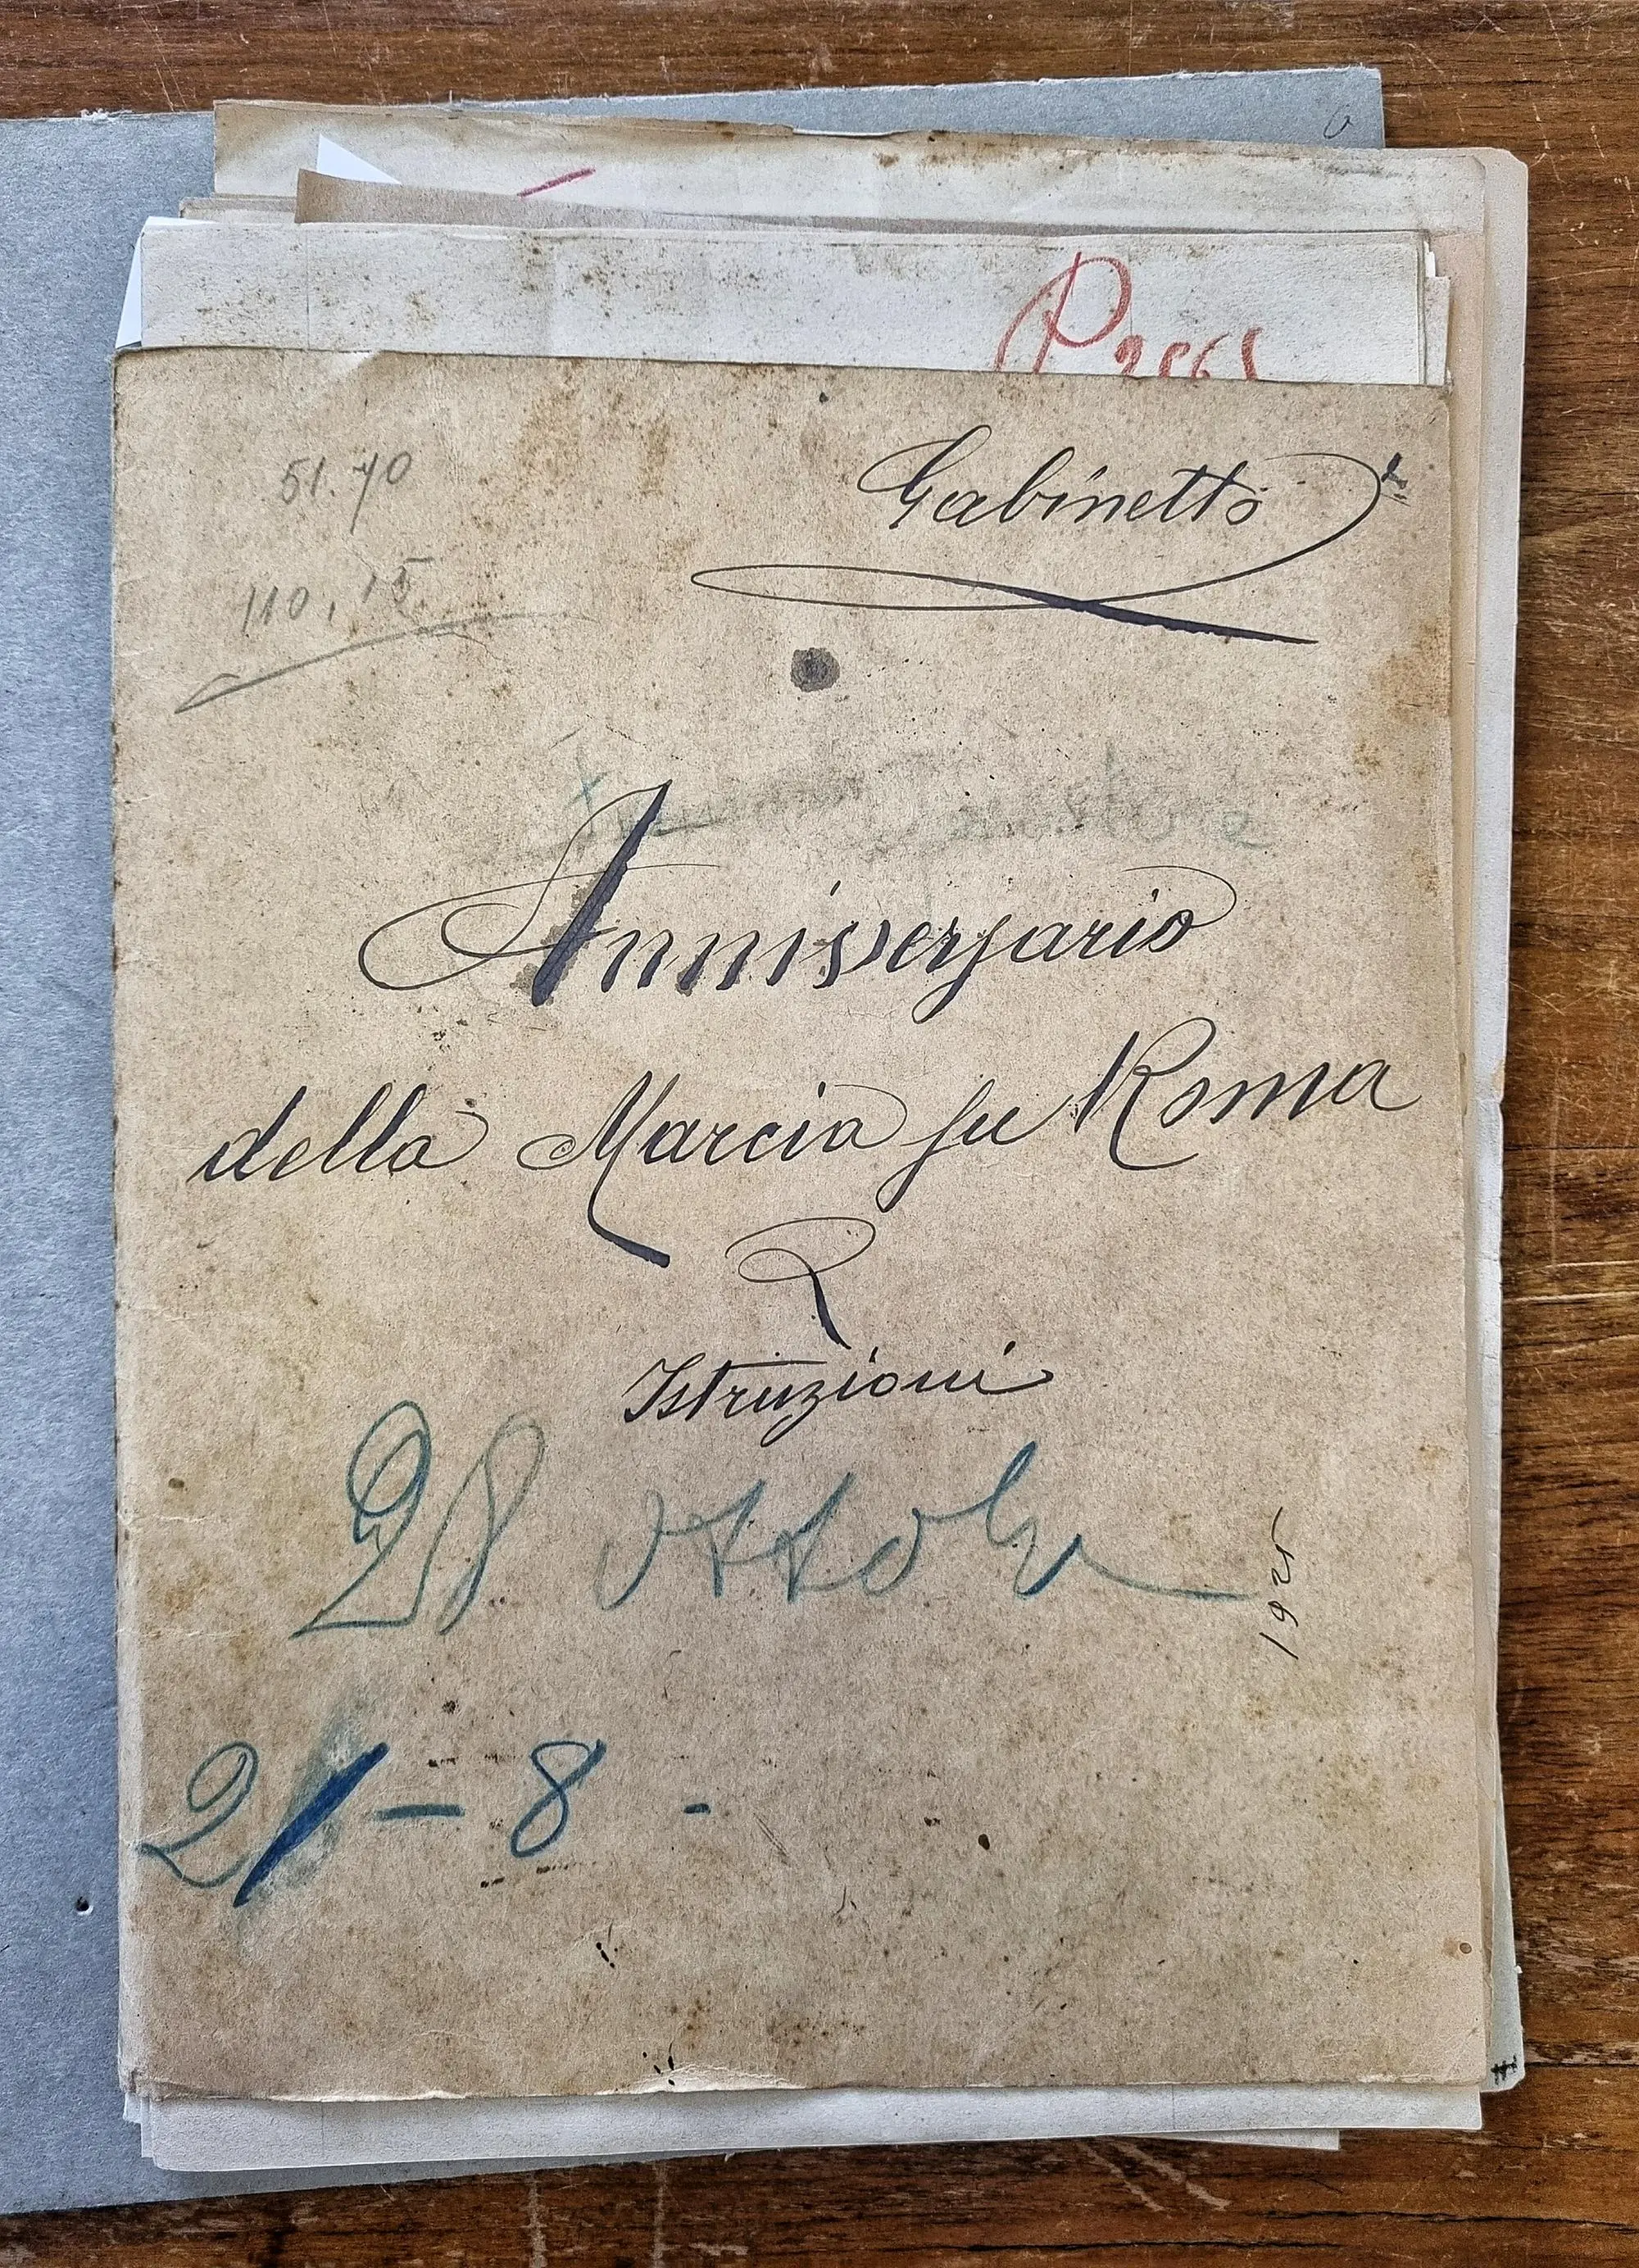 Gabinetto
51.70
110,15
Anniversario
della Marcia su Roma
Istruzioni
28 ottobre
1925
21-8-